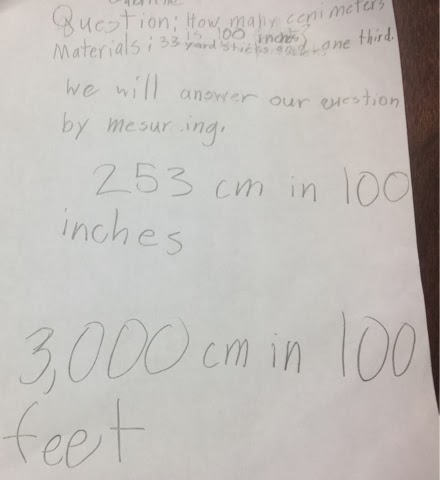 Question; How many cenimeters
is 100 inches
Materials; 33 yard sticks and one third.
We will answer our question
by mesuring.
253 cm in 100
inches
3,000 cm in 100
feet